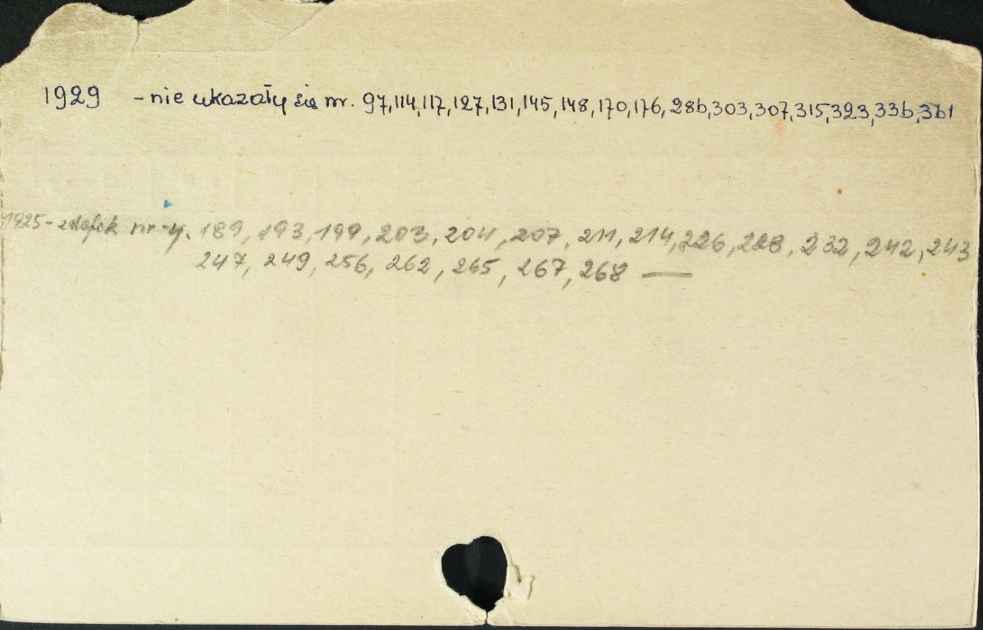 1929 - nie ukazały się nr. 97, 114, 117, 127, 131, 145, 148, 170, 176, 286, 303, 307, 315, 323, 336, 361
1925 - nr-y. 189, 193, 199, 203, 204, 207, 211, 214, 226, 228, 232, 242, 243
247, 249, 256, 262, 265, 267, 268 —